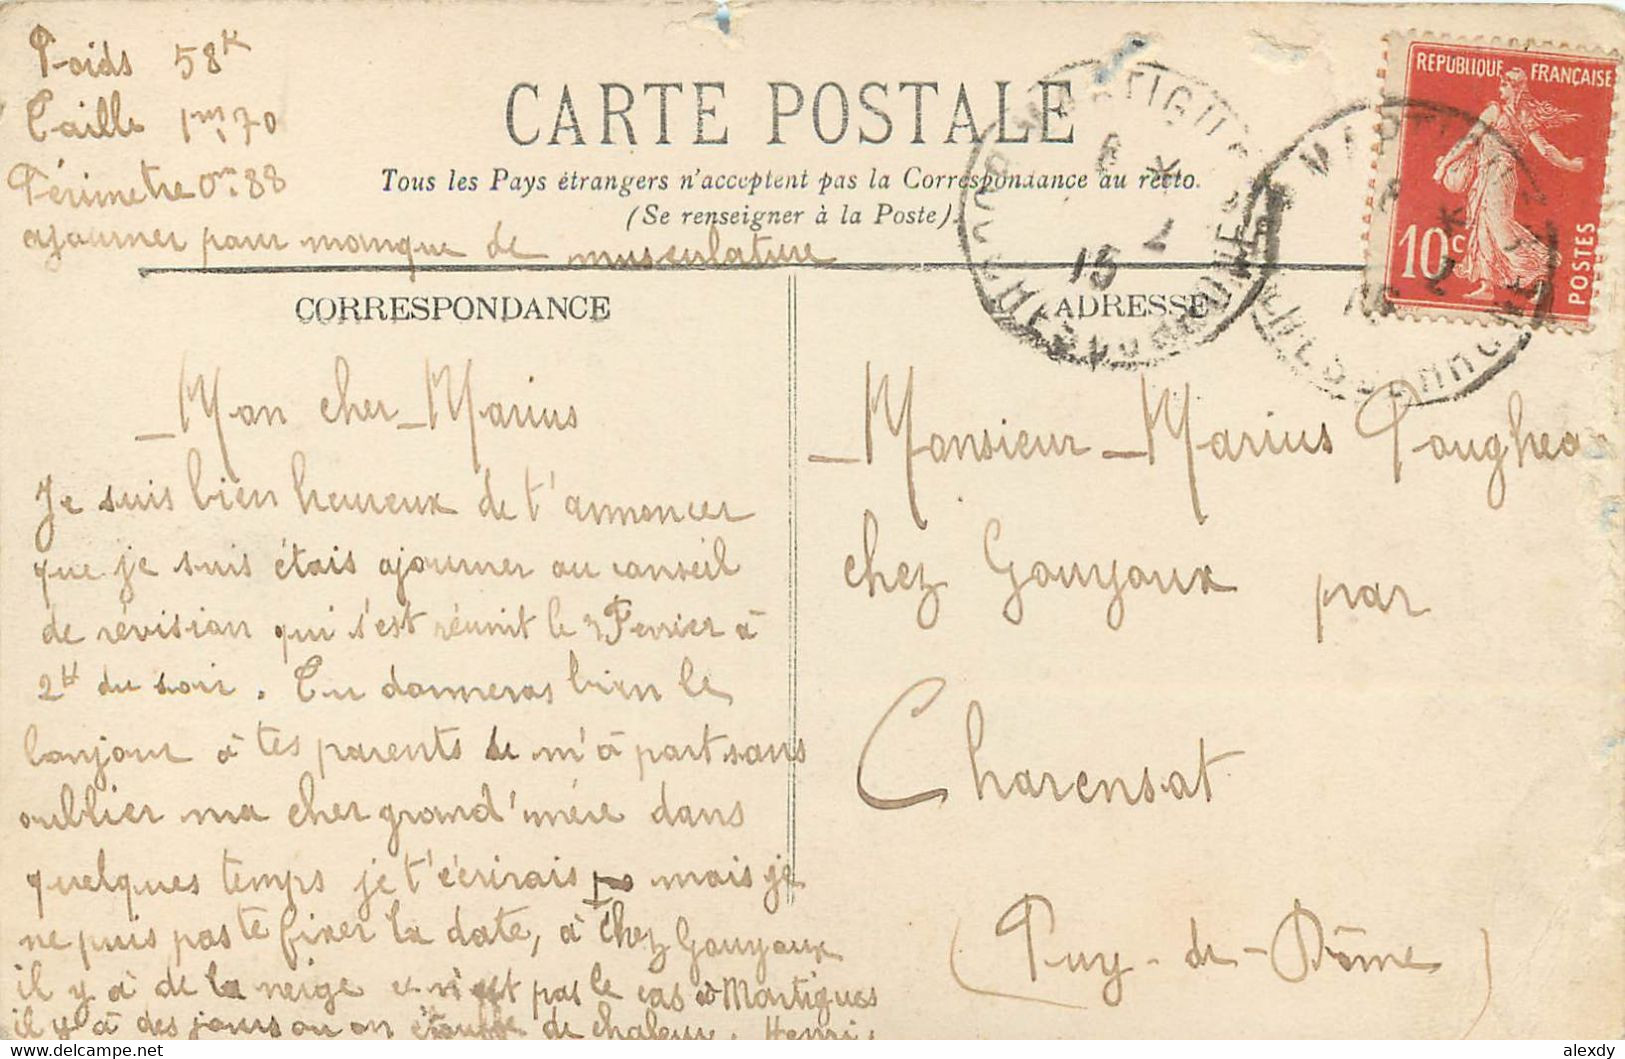 Poids 58k
Taille 1m,70
Périmetre 0m.88
ajourner pour manque de musculature
CARTE POSTALE
Tous les Pays étrangers n'acceptent pas la Correspondance au recto.
(Se renseigner à la Poste).
REPUBLIQUE FRANÇAISE
10c
POSTES
MARTIGUES
BOUCHES DU RHONE
6 * 2
15
CORRESPONDANCE
Mon cher Marius
Je suis bien heureux de t'annoncer
que je suis étais ajourner au conseil
de révision qui s'est réunit le 3 Fevrier à
2H du soir. Tu donneras bien le
bonjour à tes parents de m'a part sans
oublier ma cher grand'mère dans
quelques temps je t'écrirais mais je
ne puis pas te fixer la date, à chez Gouyoux
il y à de la neige ce n'est pas le cas à Martigues
il y à des jours ou on étouffe de chaleur. Henri.
ADRESSE
Monsieur Marius Paugheo
chez Gouyoux par
Charensat
(Puy-de-Dôme)
alexdy